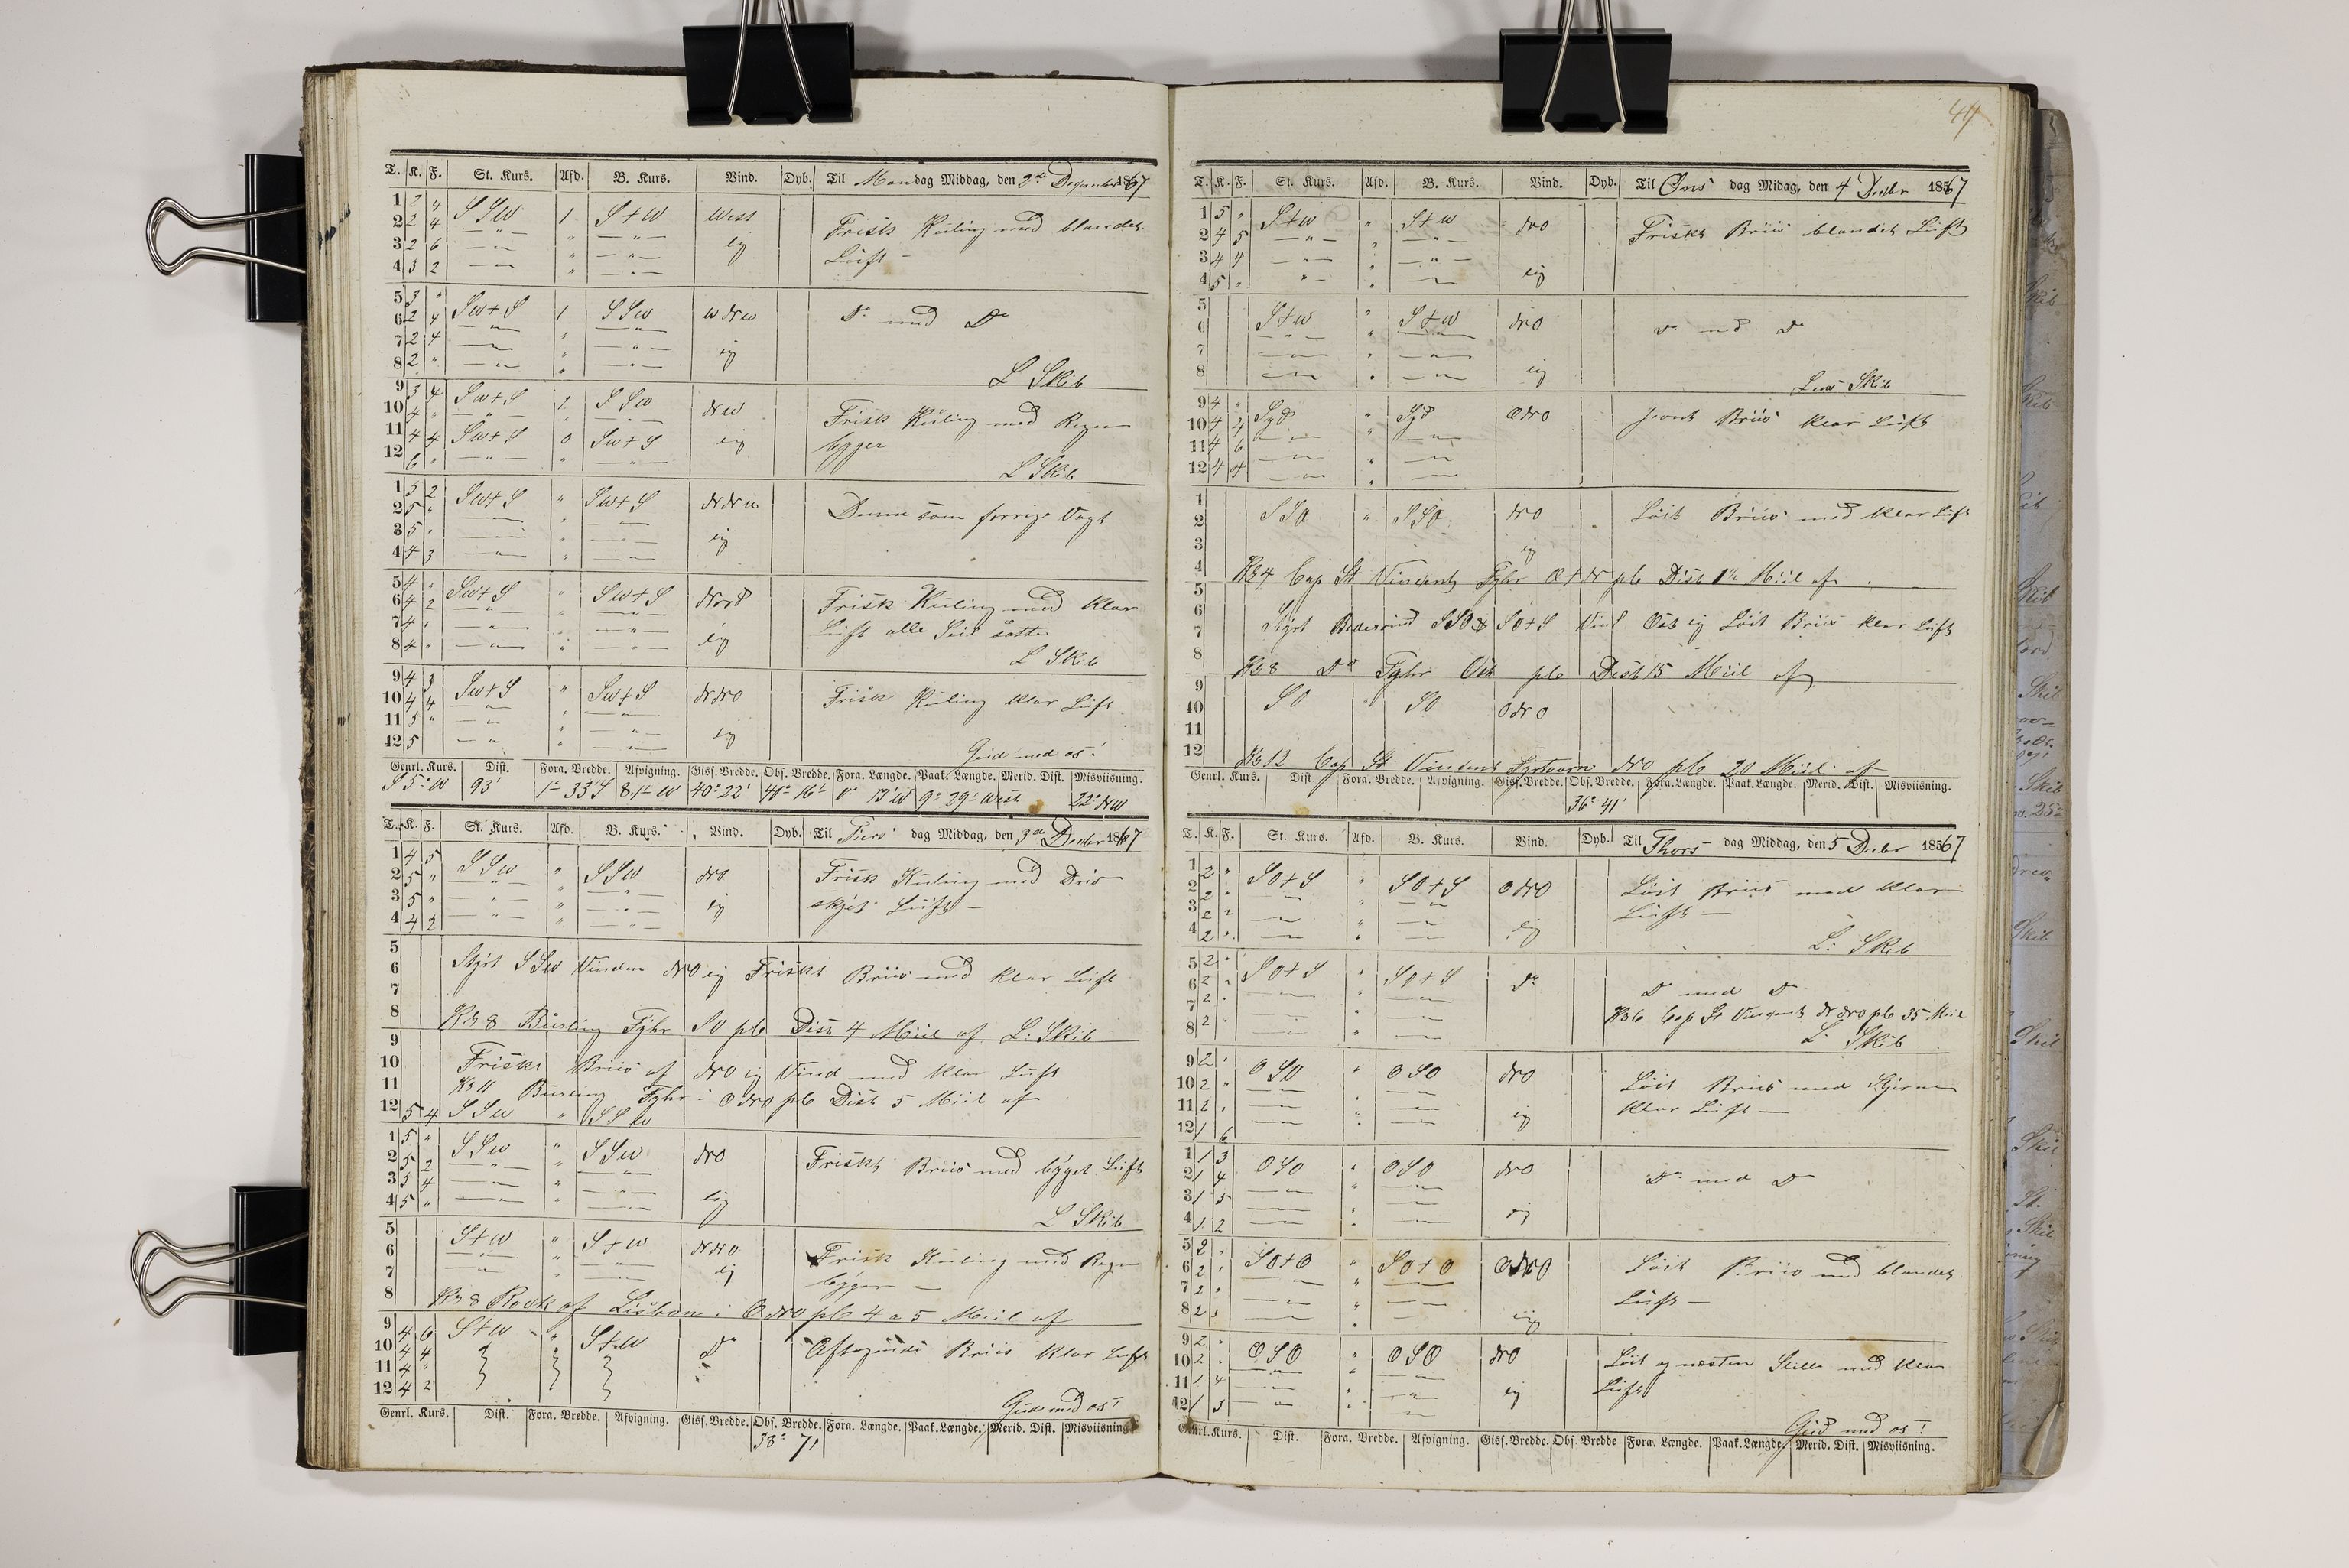 44
T. K. F. St. Kurs. Afd. B. Kurs. Vind. Dyb. Til Mandag Middag, den 2de December 1867
1 2 4 SSW 1 S+W West Frisk Kuling med blandet
2 2 4 — " — " — " — Luft —
3 2 6 — " — " — " — lig
4 3 2 — " — " — " —
5 3 " SW+S 1 SSW WNW Do med Do
6 2 4 — " — " — " —
7 2 4 — " — " — " — lig
8 2 " — " — " — " — L Skib
9 3 4 SW+S 1 SSW NW Frisk Kuling med Regn
10 4 " — " — " — " — bÿger
11 4 4 SW+S 0 SW+S lig
12 6 " — " — " — " — L Skib
1 5 2 SW+S " SW+S NNW Denne som forrige Vagt
2 5 " — " — " — " —
3 5 " — " — " — " — lig
4 4 3 — " — " — " —
5 4 " SW+S " SW+S Nord Frisk Kuling med klar
6 4 2 — " — " — " — Luft alle Seil satte
7 4 " — " — " — " — lig
8 4 " — " — " — " — L Skib
9 4 3 SW+S " SW+S NNO Frisk Kuling klar Luft
10 4 4 — " — " — " —
11 5 " — " — " — " — lig
12 5 — " — " — " — Gud med os!
Genrl. Kurs. Dist. Fora. Bredde. Afvigning. Giss. Bredde. Obs. Bredde. Fora. Længde. Paak. Længde. Merid. Dist. Misviisning.
S 5° W 93' 1° 33' S 8,1 W 40° 22' 40° 16' 0° 13' W 9° 29' West 22° NW
T. K. F. St. Kurs. Afd. B. Kurs. Vind. Dyb. Til Tiers dag Middag, den 3de Decbr 1867
1 4 5 SSW " SSW NO Frisk Kuling med
2 5 " — " — " — " — Luft —
3 5 " — " — " — " — lig
4 4 2 — " — " — " —
5
6 Styrt SSW Vinden NO lig Friskt Briis med klar Luft
7
8 Kl 8 Burling Fyhr SO pb Dist 4 Miil af L. Skib
9
10 Friskt Briis af NO lig Vind med klar Luft
11 Kl 11 Burling Fyhr i ONO pb Dist 5 Miil af
12 5 4 SSW " SSW
1 5 " SSW " SSW NO Friskt Briis med bÿget Luft
2 5 2 — " — " — " —
3 5 4 — " — " — " —
4 5 " — " — " — " — lig L Skib
5 S+W " S+W NNO Frisk Kuling med Regn
6 — " — " — " — lig bÿger —
7 — " — " — " —
8 Kl 8 Rock af Lisbon i ONO pb 4 a 5 Miil af
9 4 6 S+W " S+W Do Aftagende Briis klar Luft
10 4 4
11 4 "
12 4 2 Gud med os!
Genrl. Kurs. Dist. Fora. Bredde. Afvigning. Giss. Bredde. Obs. Bredde. Fora. Længde. Paak. Længde. Merid. Dist. Misviisning.
38° 7'
T. K. F. St. Kurs. Afd. B. Kurs. Vind. Dyb. Til Ons dag Midag, den 4 Decbr 1867
1 5 " S+W " S+W NO Friskt Briis blandet Luft
2 4 5 — " — " — " —
3 4 4 — " — " — " —
4 5 " — " — " — " — lig
5 S+W " S+W NO Do med Do
6 — " — " — " —
7 — " — " — " —
8 — " — " — " — lig Lens Skib
9 4 " Syd " Syd ONO jevnt Briis klar Luft
10 4 4 — " — " — " —
11 4 6 — " — " — " —
12 4 4 — " — " — " —
1 SSO " SSO NO Løit Briis med klar Luft
2
3 lig
4 Kl 4 Cap St Vincent Fyhr O+N pb Dist 1½ Miil af
5
6 Styrt SSO & SO+S Vind Ost lig Løit Briis klar Luft
7
8 Kl 8 Do Fyhr Ost pb Dist 15 Miil af
9
10 SO " SO ONO
11
12 Kl 12 Cap St Vincent Fyrtaarn NO pb 20 Miil af
Genrl. Kurs. Dist. Fora. Bredde. Afvigning. Giss. Bredde. Obs. Bredde. Fora. Længde. Paak. Længde. Merid. Dist. Misviisning.
36° 41'
T. K. F. St. Kurs. Afd. B. Kurs. Vind. Dyb. Til Thors dag Middag, den 5 Decbr 1867
1 2 " SO+S " SO+S ONO Løit Briis med klar
2 2 " — " — " — " — Luft —
3 2 " — " — " — " —
4 2 " — " — " — " — lig L: Skib
5 2 " SO+S " SO+S Do
6 2 " — " — " — " — Do med Do
7 2 " — " — " — " — Kl 6 Cap St Vincent NNO pb 35 Miil
8 2 " — " — " — " — L. Skib
9 2 " OSO " OSO NO Løit Briis med Stjerne
10 2 " — " — " — " — klar Luft —
11 2 " — " — " — " — lig
12 1 6 — " — " — " —
1 1 3 OSO " OSO NO Do med Do
2 1 4 — " — " — " —
3 1 5 — " — " — " —
4 1 2 — " — " — " — lig
5 2 " SO+O " SO+O ONO Løit Briis med blandet
6 2 " — " — " — " — Luft —
7 2 " — " — " — " —
8 2 " — " — " — " — lig
9 2 " OSO " OSO NO Løit og næsten Stille med klar
10 2 " — " — " — " — Luft
11 1 4 — " — " — " — lig
12 1 3 — " — " — " — Gud med os!
Genrl. Kurs. Dist. Fora. Bredde. Afvigning. Giss. Bredde. Obs. Bredde Fora. Længde. Paak. Længde. Merid. Dist. Misviisning.